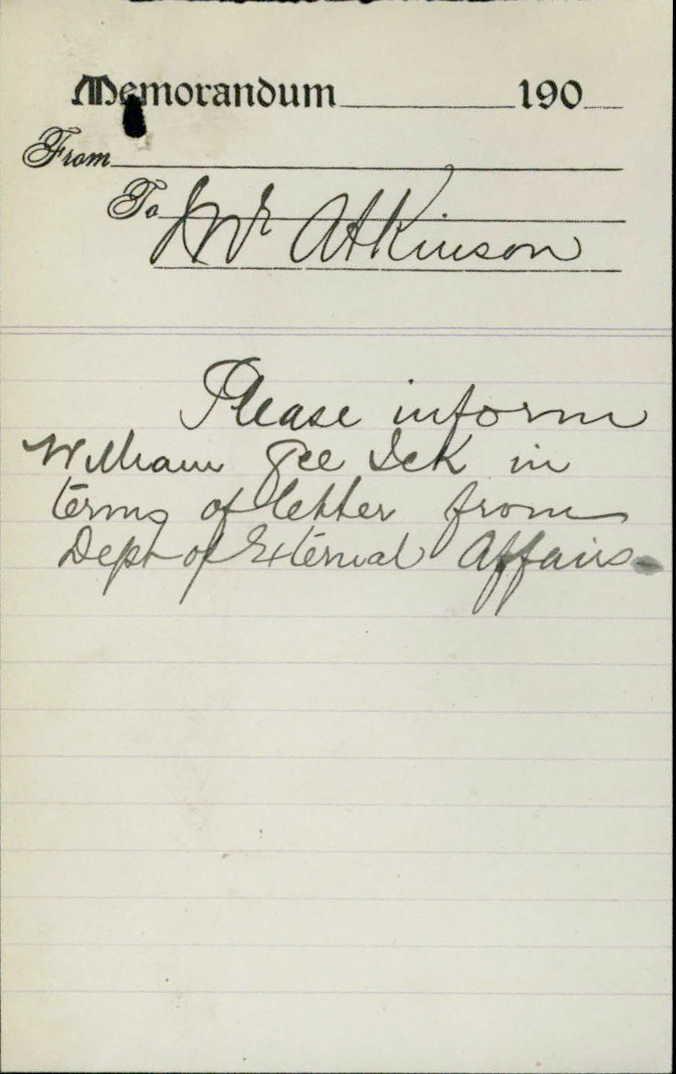 Memorandum 190
From
To Mr Atkinson
Please inform
William Gee Ick in
terms of letter from
Dept of External Affairs